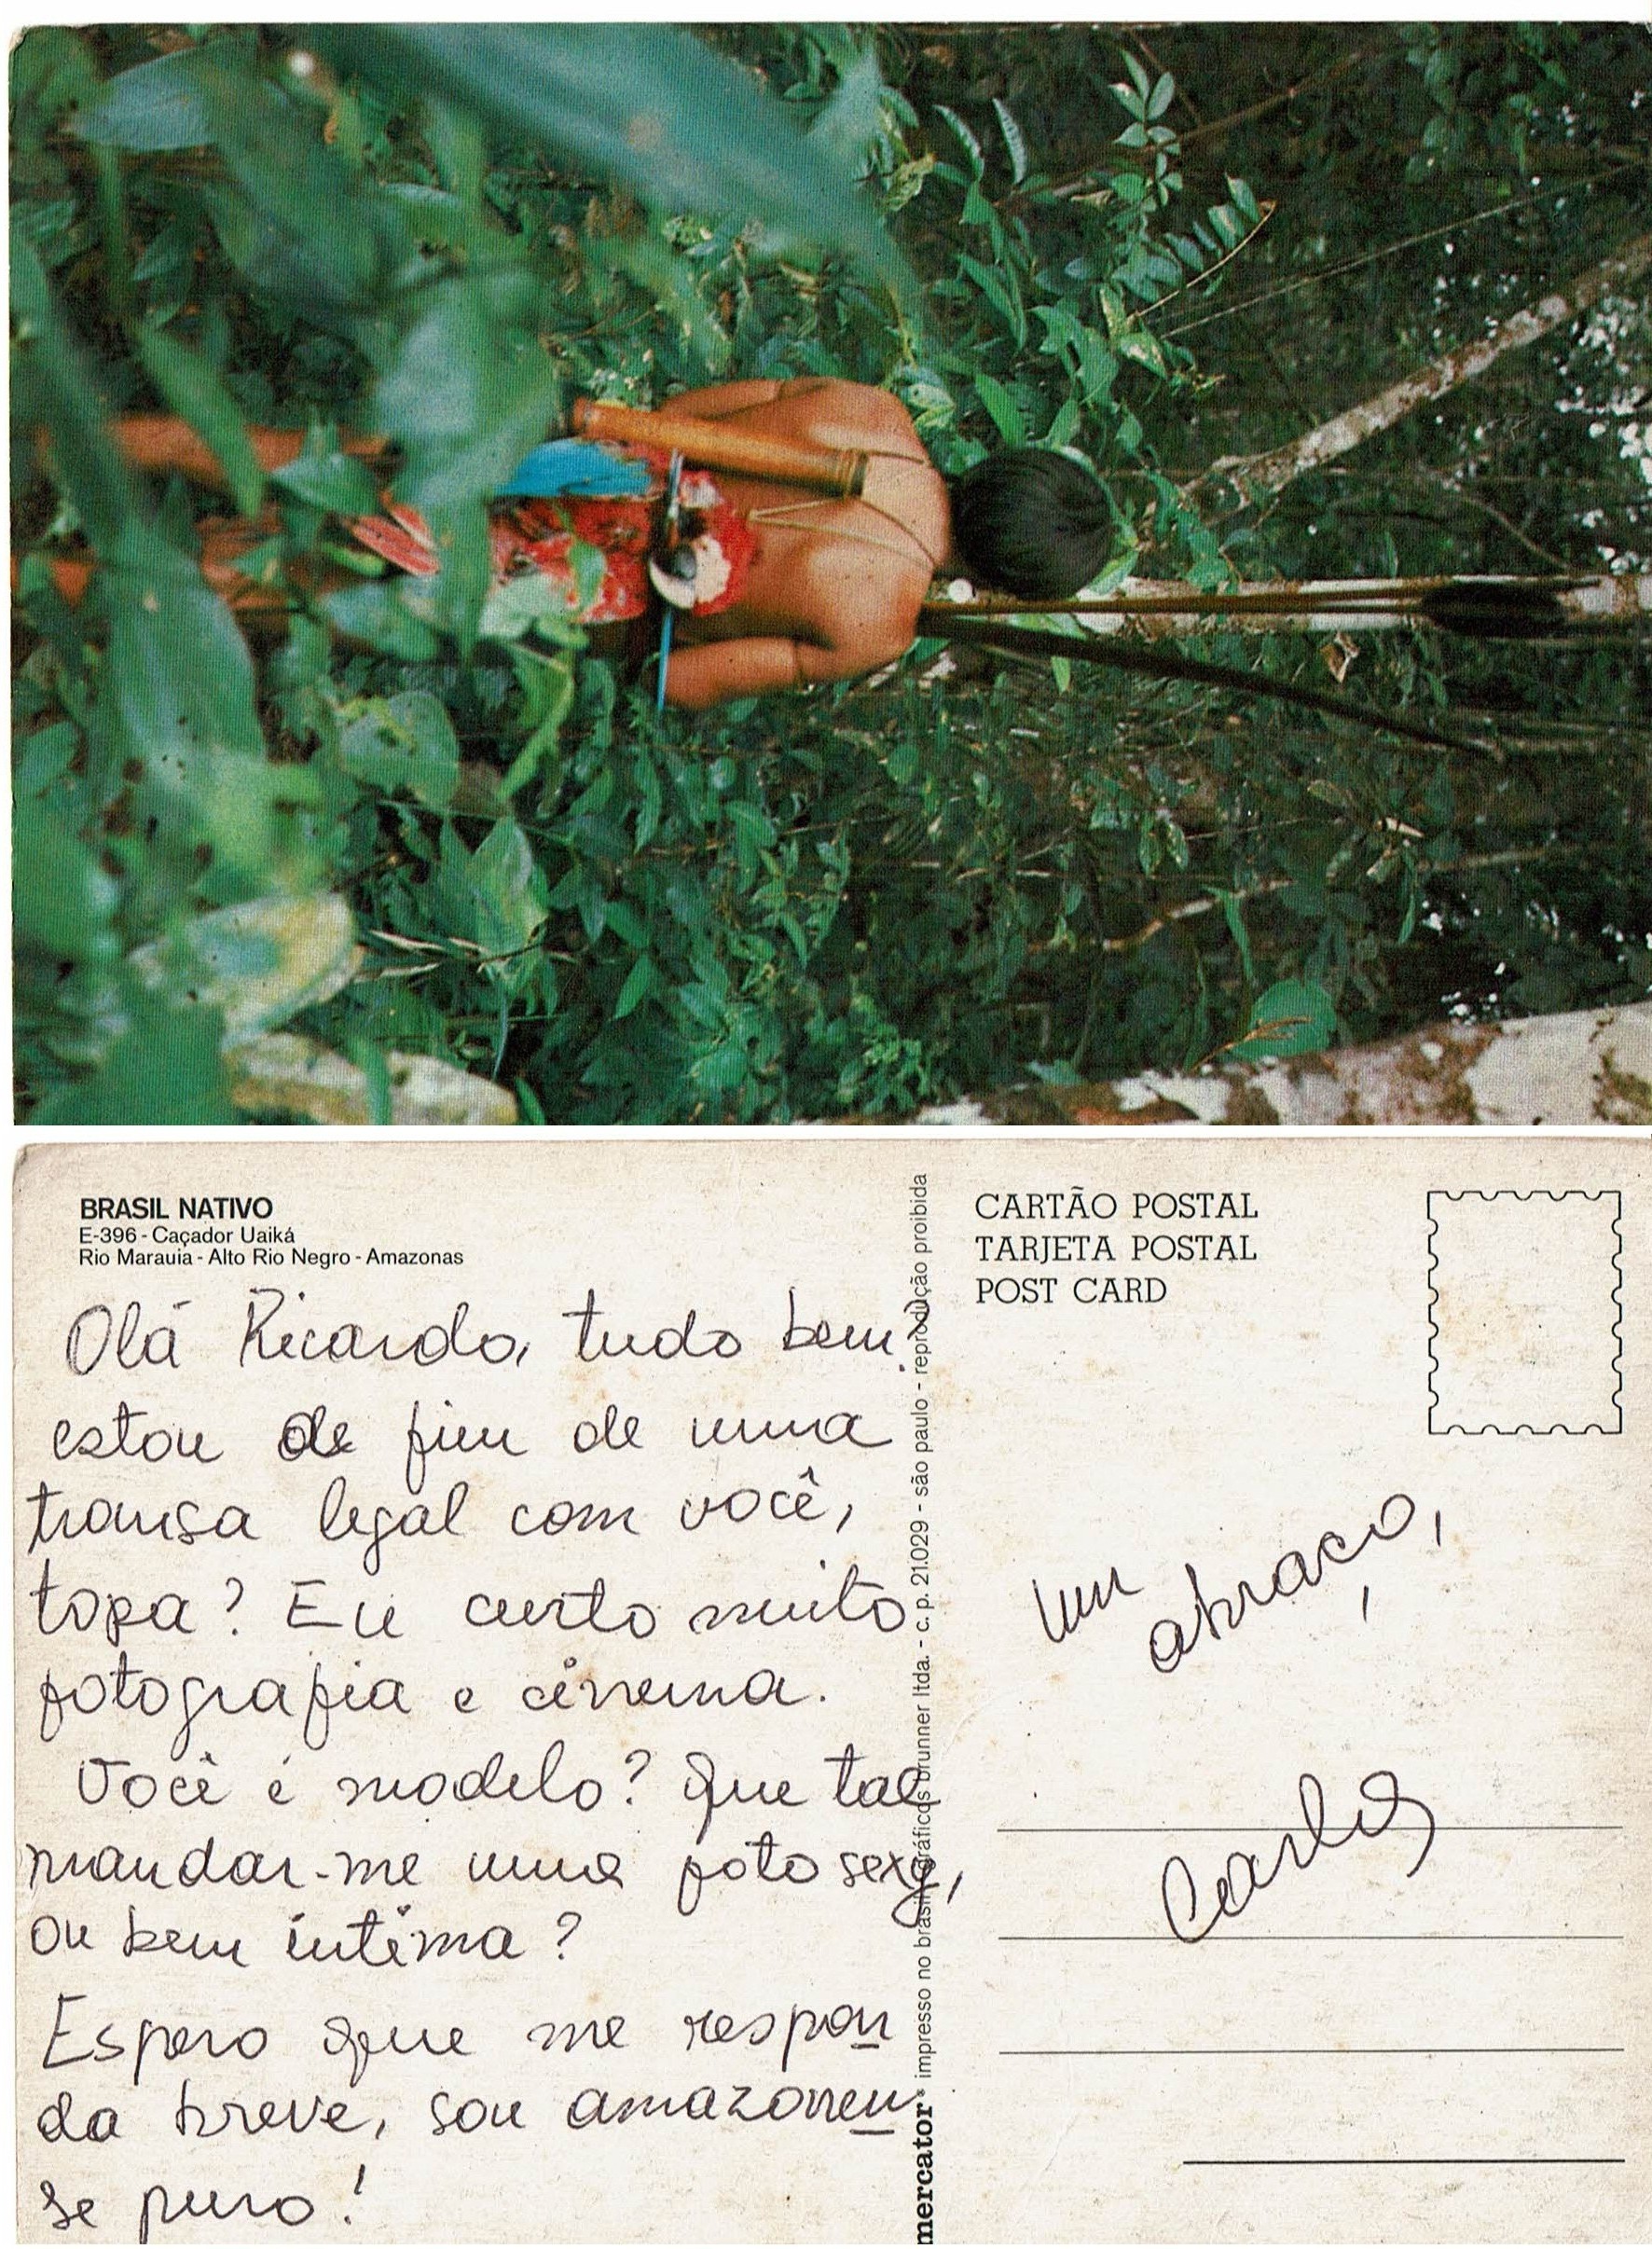 BRASIL NATIVO
E-396 - Caçador Uaiká
Rio Marauia - Alto Rio Negro - Amazonas
Olá Ricardo, tudo bem?
estou de fim de uma
transa legal com você,
topa? Eu curto muito
fotografia e cinema.
Você é modelo? Que tal
mandar-me uma foto sexy,
ou bem íntima?
Espero que me respon
da breve, sou amazonen
se puro!
mercator® impresso no brasil - gráficos brunner ltda. - c. p. 21.029 - são paulo - reprodução proibida
CARTÃO POSTAL
TARJETA POSTAL
POST CARD
Um
abraço,
Carlos